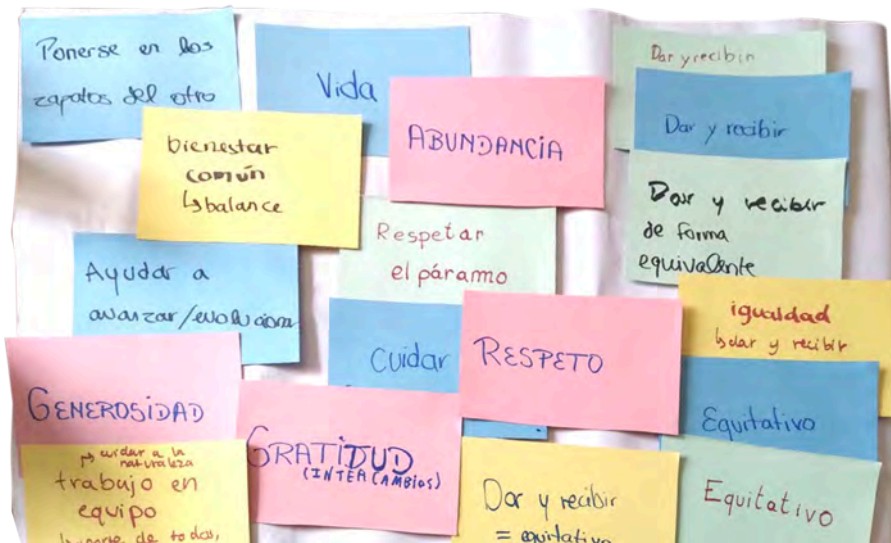 Ponerse en los
zapatos del otro
Vida
Dar y recibir
bienestar
común
↳ balance
ABUNDANCIA
Dar y recibir
Dar y recibir
de forma
equivalente
Respetar
el páramo
Ayudar a
avanzar/evolucionar
igualdad
↳ dar y recibir
Cuidar
RESPETO
GENEROSIDAD
GRATITUD
(INTERCAMBIOS)
Equitativo
↳ cuidar a la
naturaleza
trabajo en
equipo
de todos,
Dar y recibir
= equitativo
Equitativo